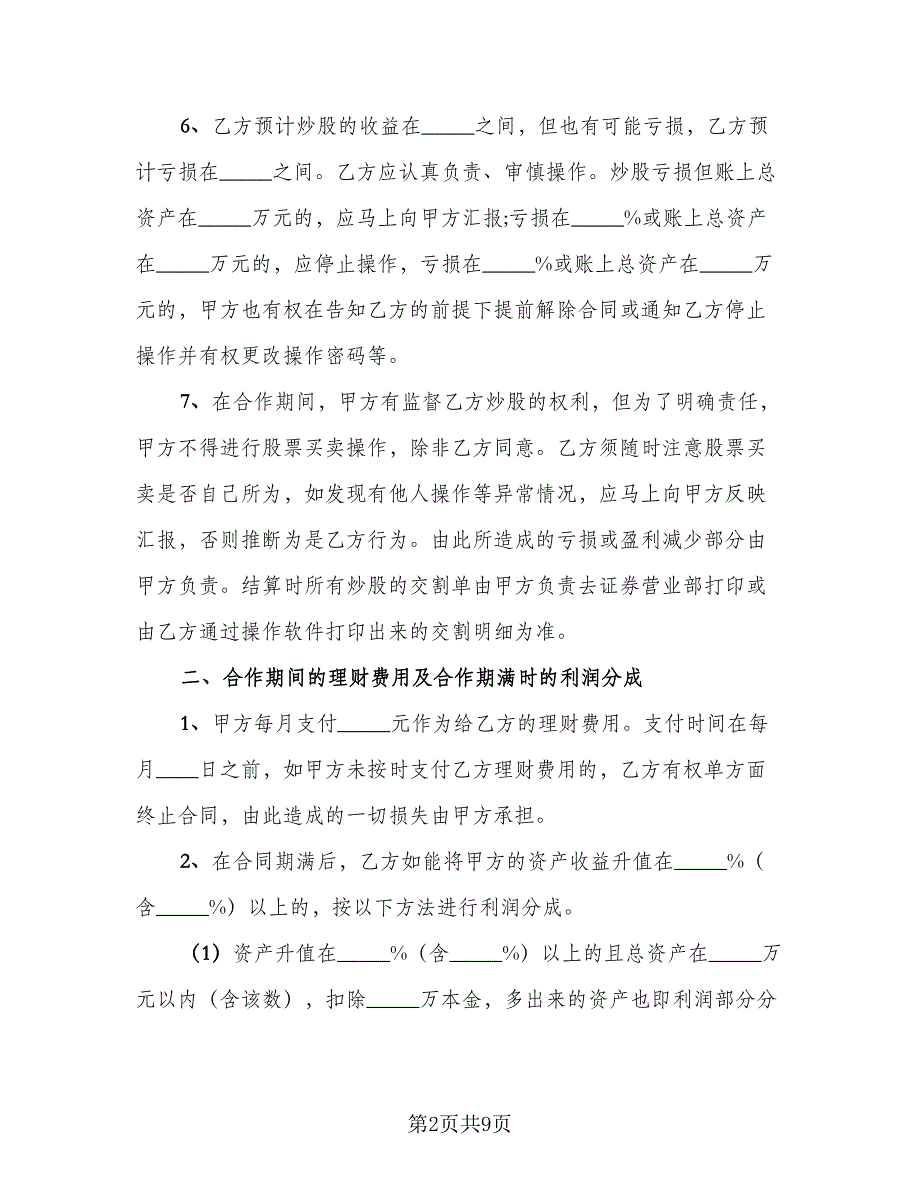 6、乙方预计炒股的收益在_____之间，但也有可能亏损，乙方预
计亏损在_____之间。乙方应认真负责、审慎操作。炒股亏损但账上总
资产在_____万元的，应马上向甲方汇报;亏损在_____%或账上总资产
在_____万元的，应停止操作，亏损在_____%或账上总资产在_____万
元的，甲方也有权在告知乙方的前提下提前解除合同或通知乙方停止
操作并有权更改操作密码等。
7、在合作期间，甲方有监督乙方炒股的权利，但为了明确责任，
甲方不得进行股票买卖操作，除非乙方同意。乙方须随时注意股票买
卖是否自己所为，如发现有他人操作等异常情况，应马上向甲方反映
汇报，否则推断为是乙方行为。由此所造成的亏损或盈利减少部分由
甲方负责。结算时所有炒股的交割单由甲方负责去证券营业部打印或
由乙方通过操作软件打印出来的交割明细为准。
二、合作期间的理财费用及合作期满时的利润分成
1、甲方每月支付_____元作为给乙方的理财费用。支付时间在每
月____日之前，如甲方未按时支付乙方理财费用的，乙方有权单方面
终止合同，由此造成的一切损失由甲方承担。
2、在合同期满后，乙方如能将甲方的资产收益升值在_____%（
含_____%）以上的，按以下方法进行利润分成。
（1）资产升值在_____%（含_____%）以上的且总资产在_____万
元以内（含该数），扣除_____万本金，多出来的资产也即利润部分分
第2页共9页